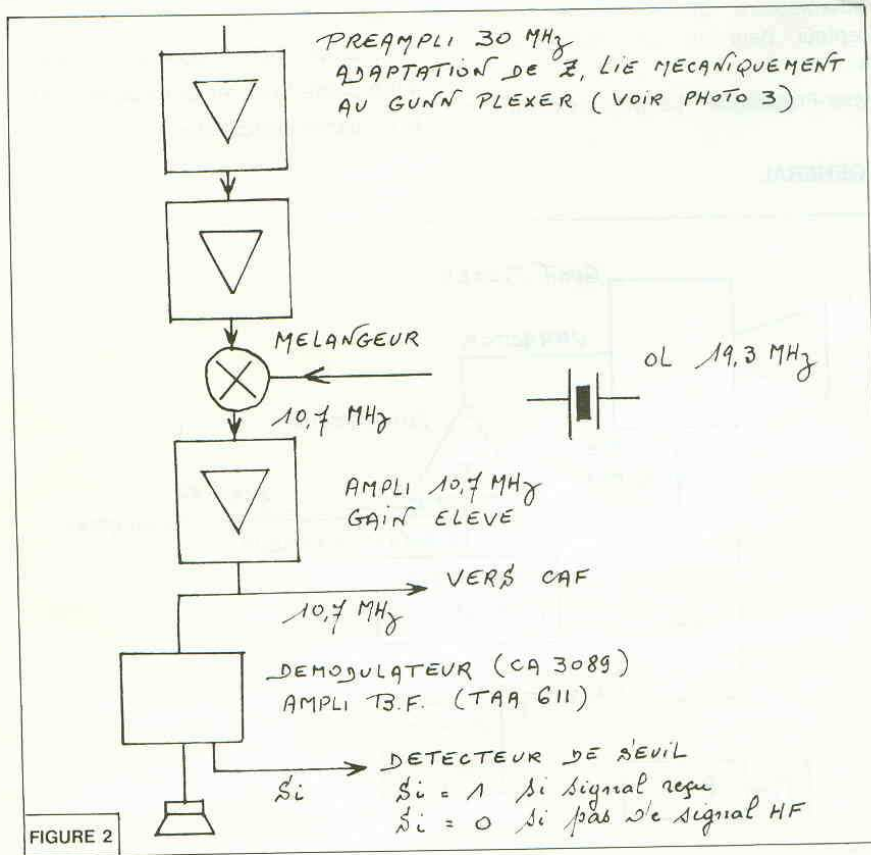 PREAMPLI 30 MHz
ADAPTATION DE Z, LIE MECANIQUEMENT
AU GUNN PLEXER (VOIR PHOTO 3)
MELANGEUR
OL 19,3 MHz
10,7 MHz
AMPLI 10,7 MHz
GAIN ELEVE
VERS CAF
10,7 MHz
DEMODULATEUR (CA 3089)
AMPLI B.F. (TAA 611)
DETECTEUR DE SEUIL
Si
Si = 1 si signal reçu
Si = 0 si pas de signal HF
FIGURE 2
GENERAL